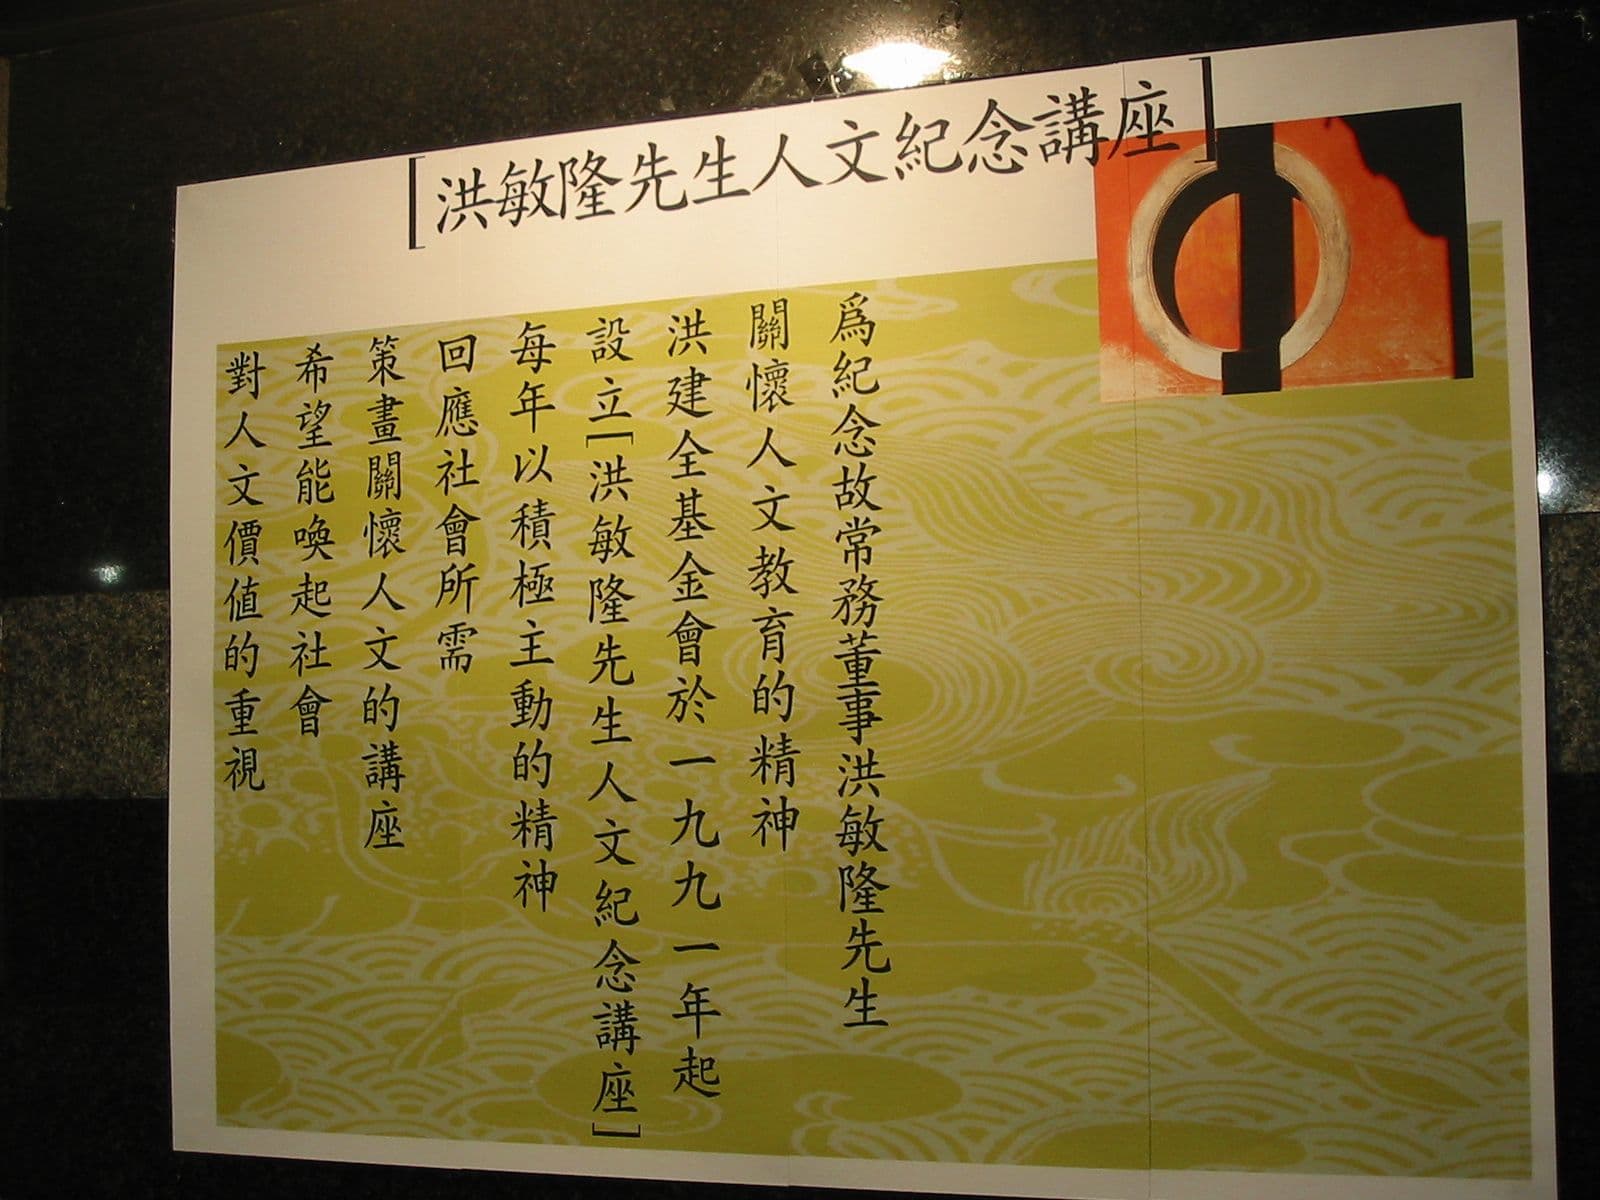 [洪敏隆先生人文紀念講座]
爲紀念故常務董事洪敏隆先生
關懷人文教育的精神
洪建全基金會於一九九一年起
設立[洪敏隆先生人文紀念講座]
每年以積極主動的精神
回應社會所需
策畫關懷人文的講座
希望能喚起社會
對人文價值的重視